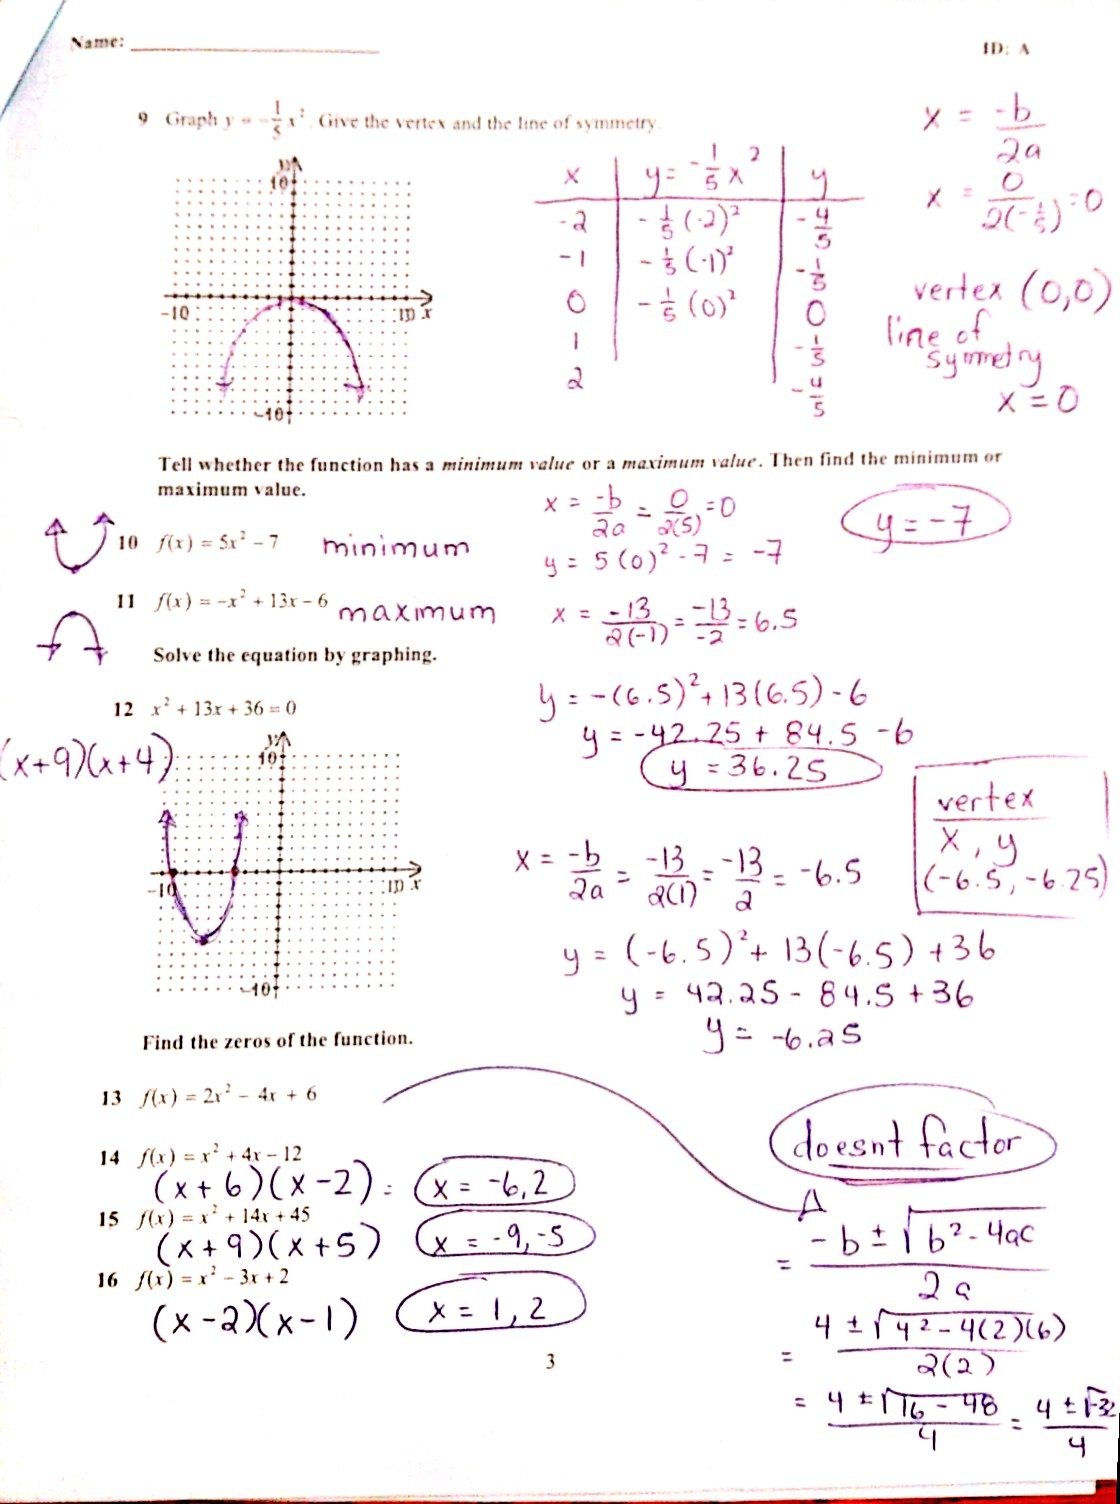 Name: ____________________
ID: A
9 Graph y = -1/5 x². Give the vertex and the line of symmetry.
x = -b/2a
x = 0/2(-1/5) = 0
vertex (0,0)
line of
symmetry
x = 0
x | y = -1/5 x² | y
-2 | -1/5 (-2)² | -4/5
-1 | -1/5 (-1)² | -1/5
0 | -1/5 (0)² | 0
1 | | -1/5
2 | | -4/5
y
10
-10
10 x
-10
Tell whether the function has a minimum value or a maximum value. Then find the minimum or
maximum value.
10 f(x) = 5x² - 7 minimum
x = -b/2a = 0/2(5) = 0
y = 5(0)² - 7 = -7
y = -7
11 f(x) = -x² + 13x - 6 maximum
x = -13/2(-1) = -13/-2 = 6.5
y = -(6.5)² + 13(6.5) - 6
y = -42.25 + 84.5 - 6
y = 36.25
Solve the equation by graphing.
12 x² + 13x + 36 = 0
(x+9)(x+4)
y
10
-10
10 x
-10
vertex
x, y
(-6.5, -6.25)
x = -b/2a = -13/2(1) = -13/2 = -6.5
y = (-6.5)² + 13(-6.5) + 36
y = 42.25 - 84.5 + 36
y = -6.25
Find the zeros of the function.
13 f(x) = 2x² - 4x + 6
doesnt factor
= -b ± √b² - 4ac / 2a
= 4 ± √4² - 4(2)(6) / 2(2)
= 4 ± √16 - 48 / 4 = 4 ± √-32 / 4
14 f(x) = x² + 4x - 12
(x+6)(x-2) = x = -6, 2
15 f(x) = x² + 14x + 45
(x+9)(x+5) x = -9, -5
16 f(x) = x² - 3x + 2
(x-2)(x-1) x = 1, 2
3